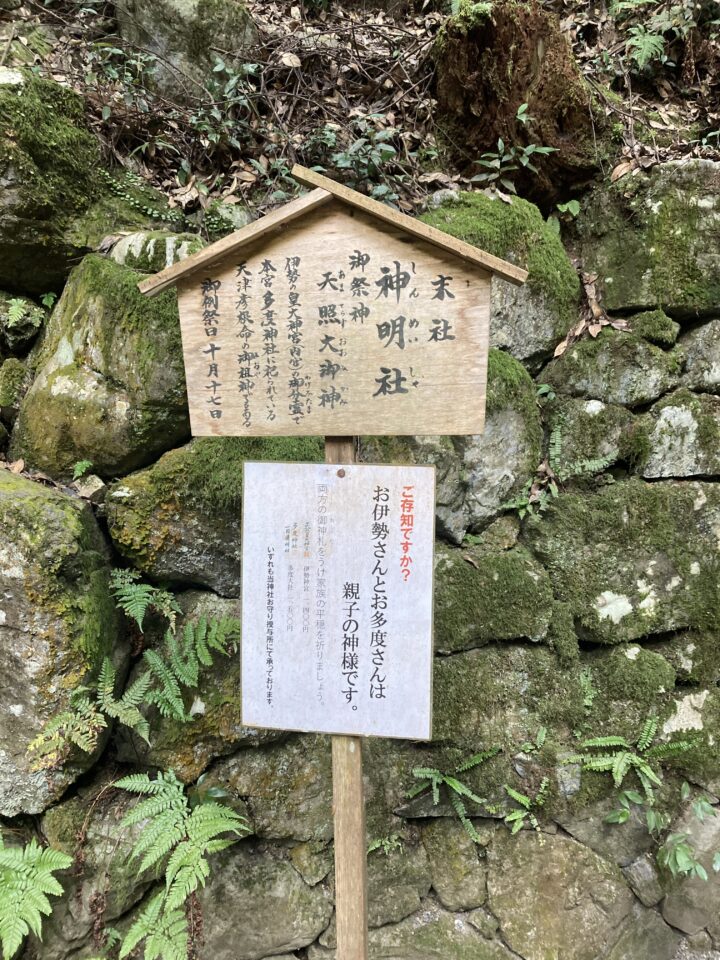 末社
神明社
しんめいしゃ
御祭神
天照大御神
あまてらすおおみかみ
伊勢の皇大神宮(内宮)の御分霊で
本宮多度神社に祀られている
天津彦根命の御祖神である
御例祭日 十月十七日
ご存知ですか?
お伊勢さんとお多度さんは
親子の神様です。
両方の御神札をうけ家族の平穏を祈りましょう。
伊勢神宮
多度大社
いずれも当神社お守り授与所にて承っております。